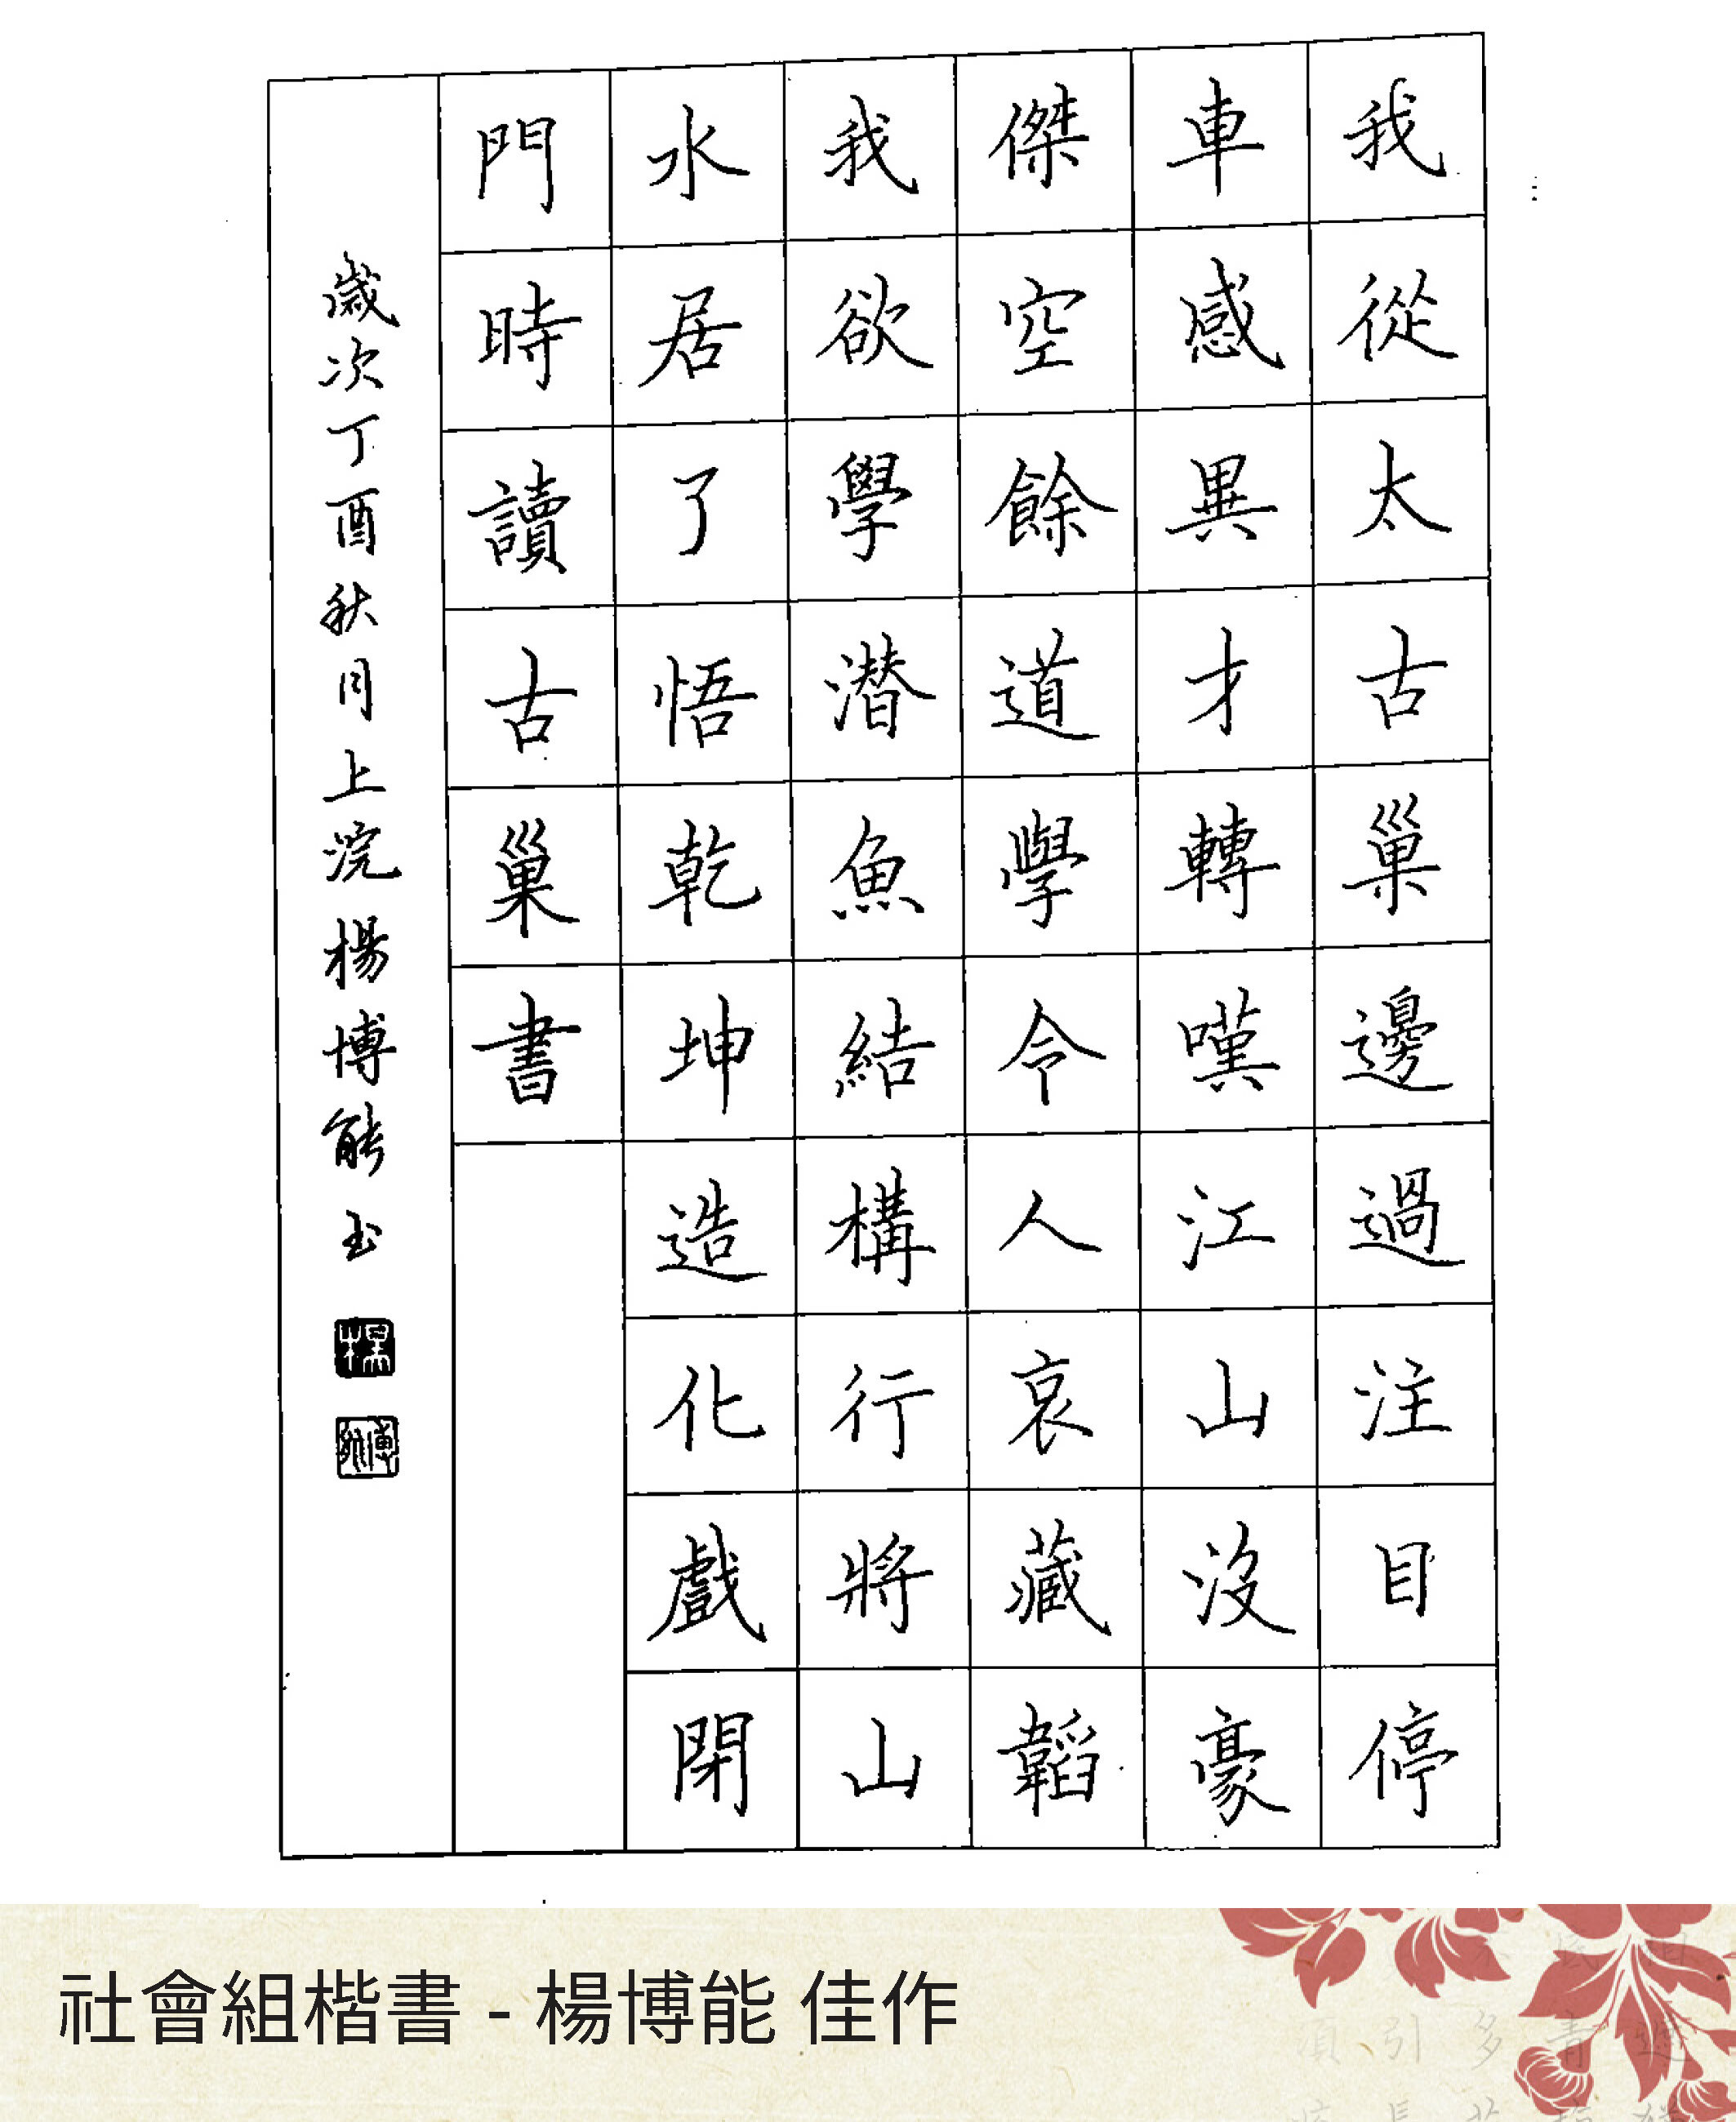 我從太古巢邊過注目停
車感異才轉嘆江山沒豪
傑空餘道學令人哀藏韜
我欲學潛魚結構行將山
水居了悟乾坤造化戲閉
門時讀古巢書
歲次丁酉秋月上浣楊博能書
社會組楷書 - 楊博能 佳作